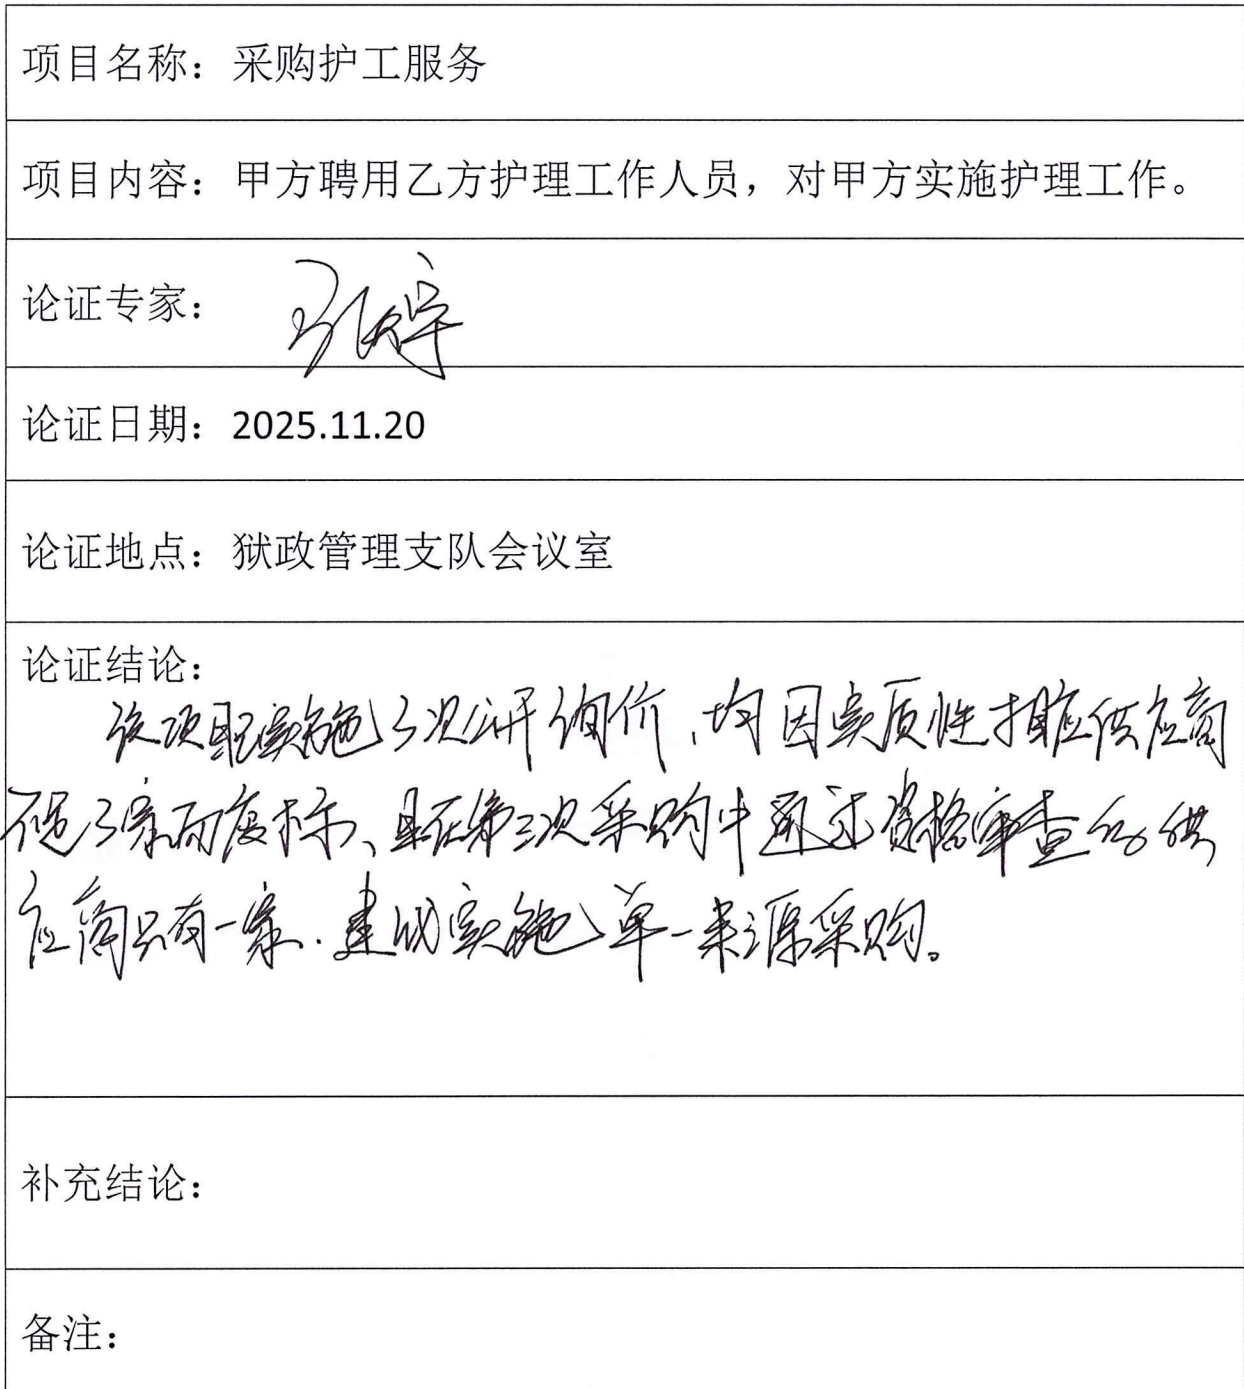 项目名称：采购护工服务
项目内容：甲方聘用乙方护理工作人员，对甲方实施护理工作。
论证专家：张宇
论证日期：2025.11.20
论证地点：狱政管理支队会议室
论证结论：
该项目已实施3次公开询价，均因实质性相应供应商
不足3家而废标、且在第三次采购中通过资格审查的供
应商只有一家．建议实施单一来源采购。
补充结论：
备注：